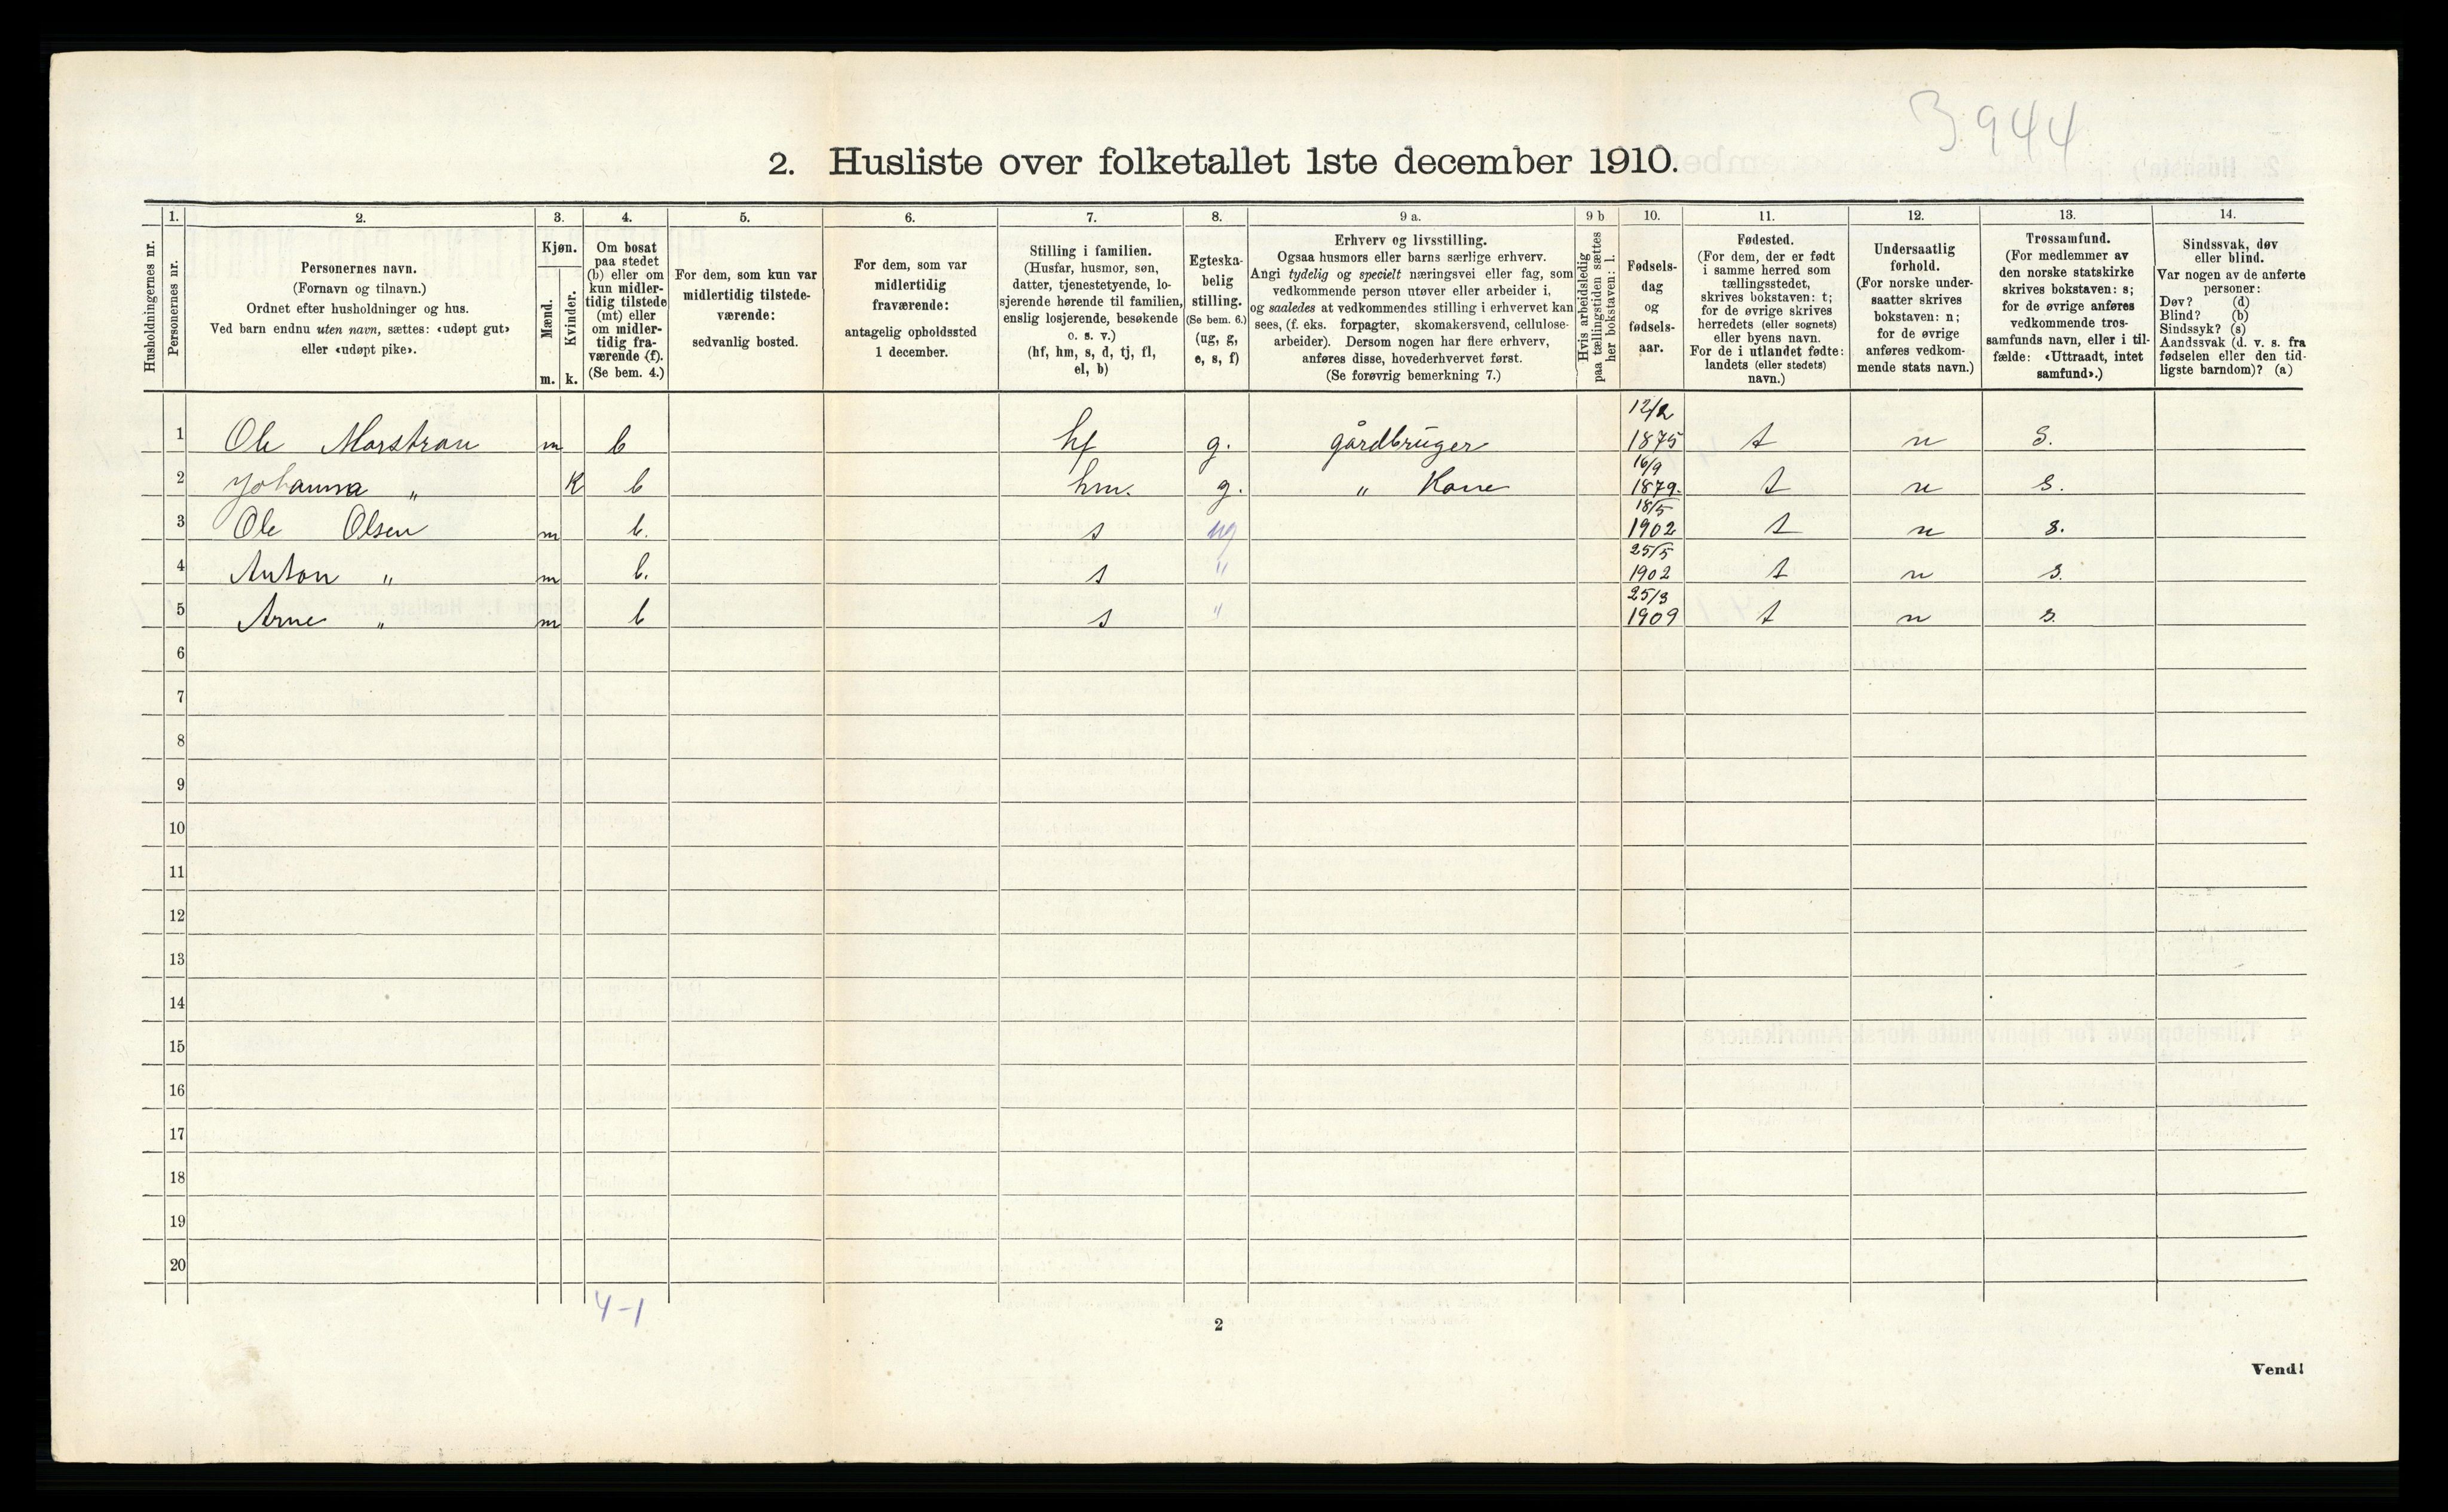 3944
2. Husliste over folketallet 1ste december 1910.
Husholdningernes nr.
1.
Personernes nr.
2.
Personernes navn.
(Fornavn og tilnavn.)
Ordnet efter husholdninger og hus.
Ved barn endnu uten navn, sættes: «udøpt gut»
eller «udøpt pike».
3.
Kjøn.
Mænd.
m.
Kvinder.
k.
4.
Om bosat
paa stedet
(b) eller om
kun midler-
tidig tilstede
(mt) eller
om midler-
tidig fra-
værende (f).
(Se bem. 4.)
5.
For dem, som kun var
midlertidig tilstede-
værende:
sedvanlig bosted.
6.
For dem, som var
midlertidig
fraværende:
antagelig opholdssted
1 december.
7.
Stilling i familien.
(Husfar, husmor, søn,
datter, tjenestetyende, lo-
sjerende hørende til familien,
enslig losjerende, besøkende
o. s. v.)
(hf, hm, s, d, tj, fl,
el, b)
8.
Egteska-
belig
stilling.
(Se bem. 6.)
(ug, g,
e, s, f)
9 a.
Erhverv og livsstilling.
Ogsaa husmors eller barns særlige erhverv.
Angi tydelig og specielt næringsvei eller fag, som
vedkommende person utøver eller arbeider i,
og saaledes at vedkommendes stilling i erhvervet kan
sees, (f. eks. forpagter, skomakersvend, cellulose-
arbeider). Dersom nogen har flere erhverv,
anføres disse, hovederhvervet først.
(Se forøvrig bemerkning 7.)
9 b
Hvis arbeidsledig
paa tællingstiden sættes
her bokstaven: l.
10.
Fødsels-
dag
og
fødsels-
aar.
11.
Fødested.
(For dem, der er født
i samme herred som
tællingsstedet,
skrives bokstaven: t;
for de øvrige skrives
herredets (eller sognets)
eller byens navn.
For de i utlandet fødte:
landets (eller stedets)
navn.)
12.
Undersaatlig
forhold.
(For norske under-
saatter skrives
bokstaven: n;
for de øvrige
anføres vedkom-
mende stats navn.)
13.
Trossamfund.
(For medlemmer av
den norske statskirke
skrives bokstaven: s;
for de øvrige anføres
vedkommende tros-
samfunds navn, eller i til-
fælde: «Uttraadt, intet
samfund».)
14.
Sindssvak, døv
eller blind.
Var nogen av de anførte
personer:
Døv? (d)
Blind? (b)
Sindssyk? (s)
Aandssvak (d. v. s. fra
fødselen eller den tid-
ligste barndom)? (a)
1 Ole Morstrau m b hf g. gårdbruger 12/2 1875 t n S.
2 Johanna " K b hm. g. " Kone 16/9 1879. t n s.
3 Ole Olsen m b. s ug 18/5 1902 t n s.
4 Anton " m b. s " 25/5 1902 t n s.
5 Arne " m b s " 25/3 1909 t n s.
6
7
8
9
10
11
12
13
14
15
16
17
18
19
20
4-1
2
Vend!